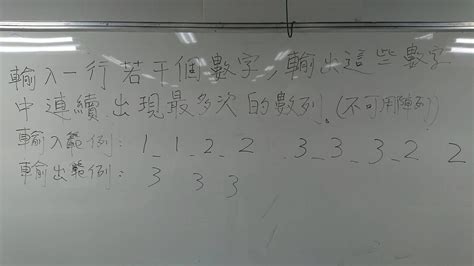 輸入一行若干個數字,輸出這些數字
中連續出現最多次的數列。(不可用陣列)
輸入範例: 1_1_2_2_3_3_3_2 2
輸出範例: 3 3 3